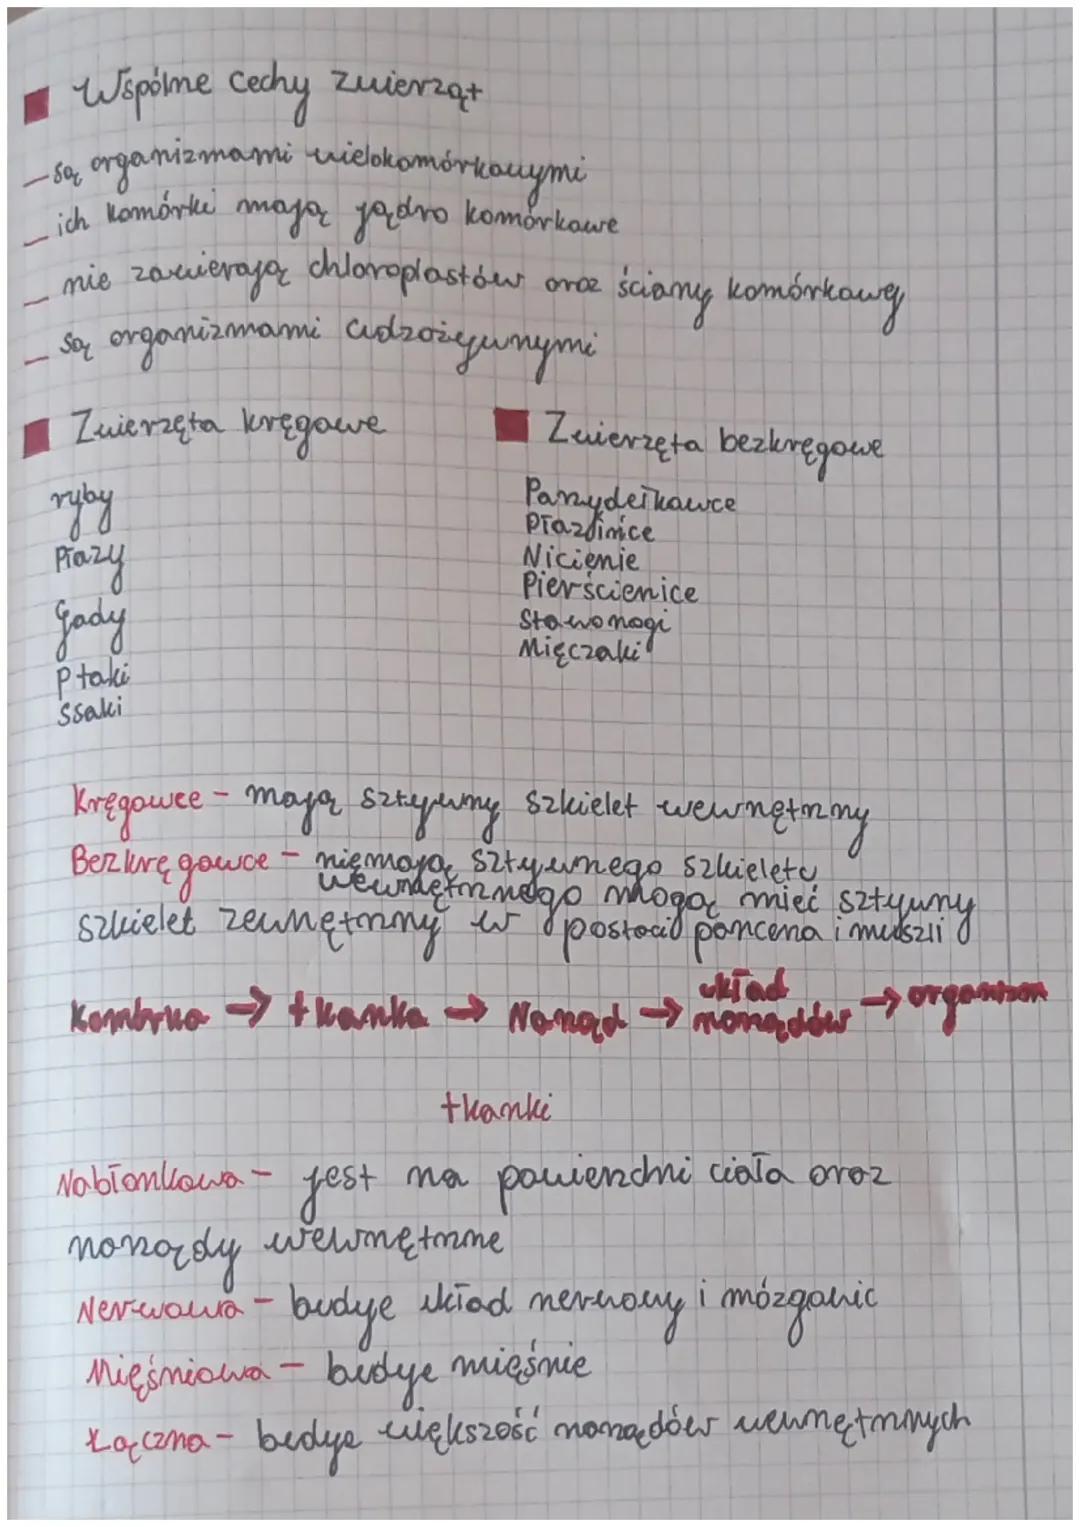 Wspólne cechy zwierząt
- są organizmami wielokomórkowymi
- ich komórki mają jądro komórkowe
- nie zawierają chloroplastów oraz ściany komórkowej
- są organizmami cudzożywnymi
Zwierzęta kręgowe
ryby
Płazy
Gady
Ptaki
Ssaki
Zwierzęta bezkręgowe
Parzydełkowce
Płazińce
Nicienie
Pierścienice
Stawonogi
Mięczaki
Kręgowce - mają sztywny szkielet wewnętrzny
Bezkręgowce - nie mają sztywnego szkieletu
wewnętrznego mogą mieć sztywny
szkielet zewnętrzny w postaci pancerza i muszli
Komórka → tkanka → Narząd → układ narządów → organizm
tkanki
Nabłonkowa - jest na powierzchni ciała oraz
narządy wewnętrzne
Nerwowa - buduje układ nerwowy i mózgowie
Mięśniowa - buduje mięśnie
Łączna - buduje większość narządów wewnętrznych